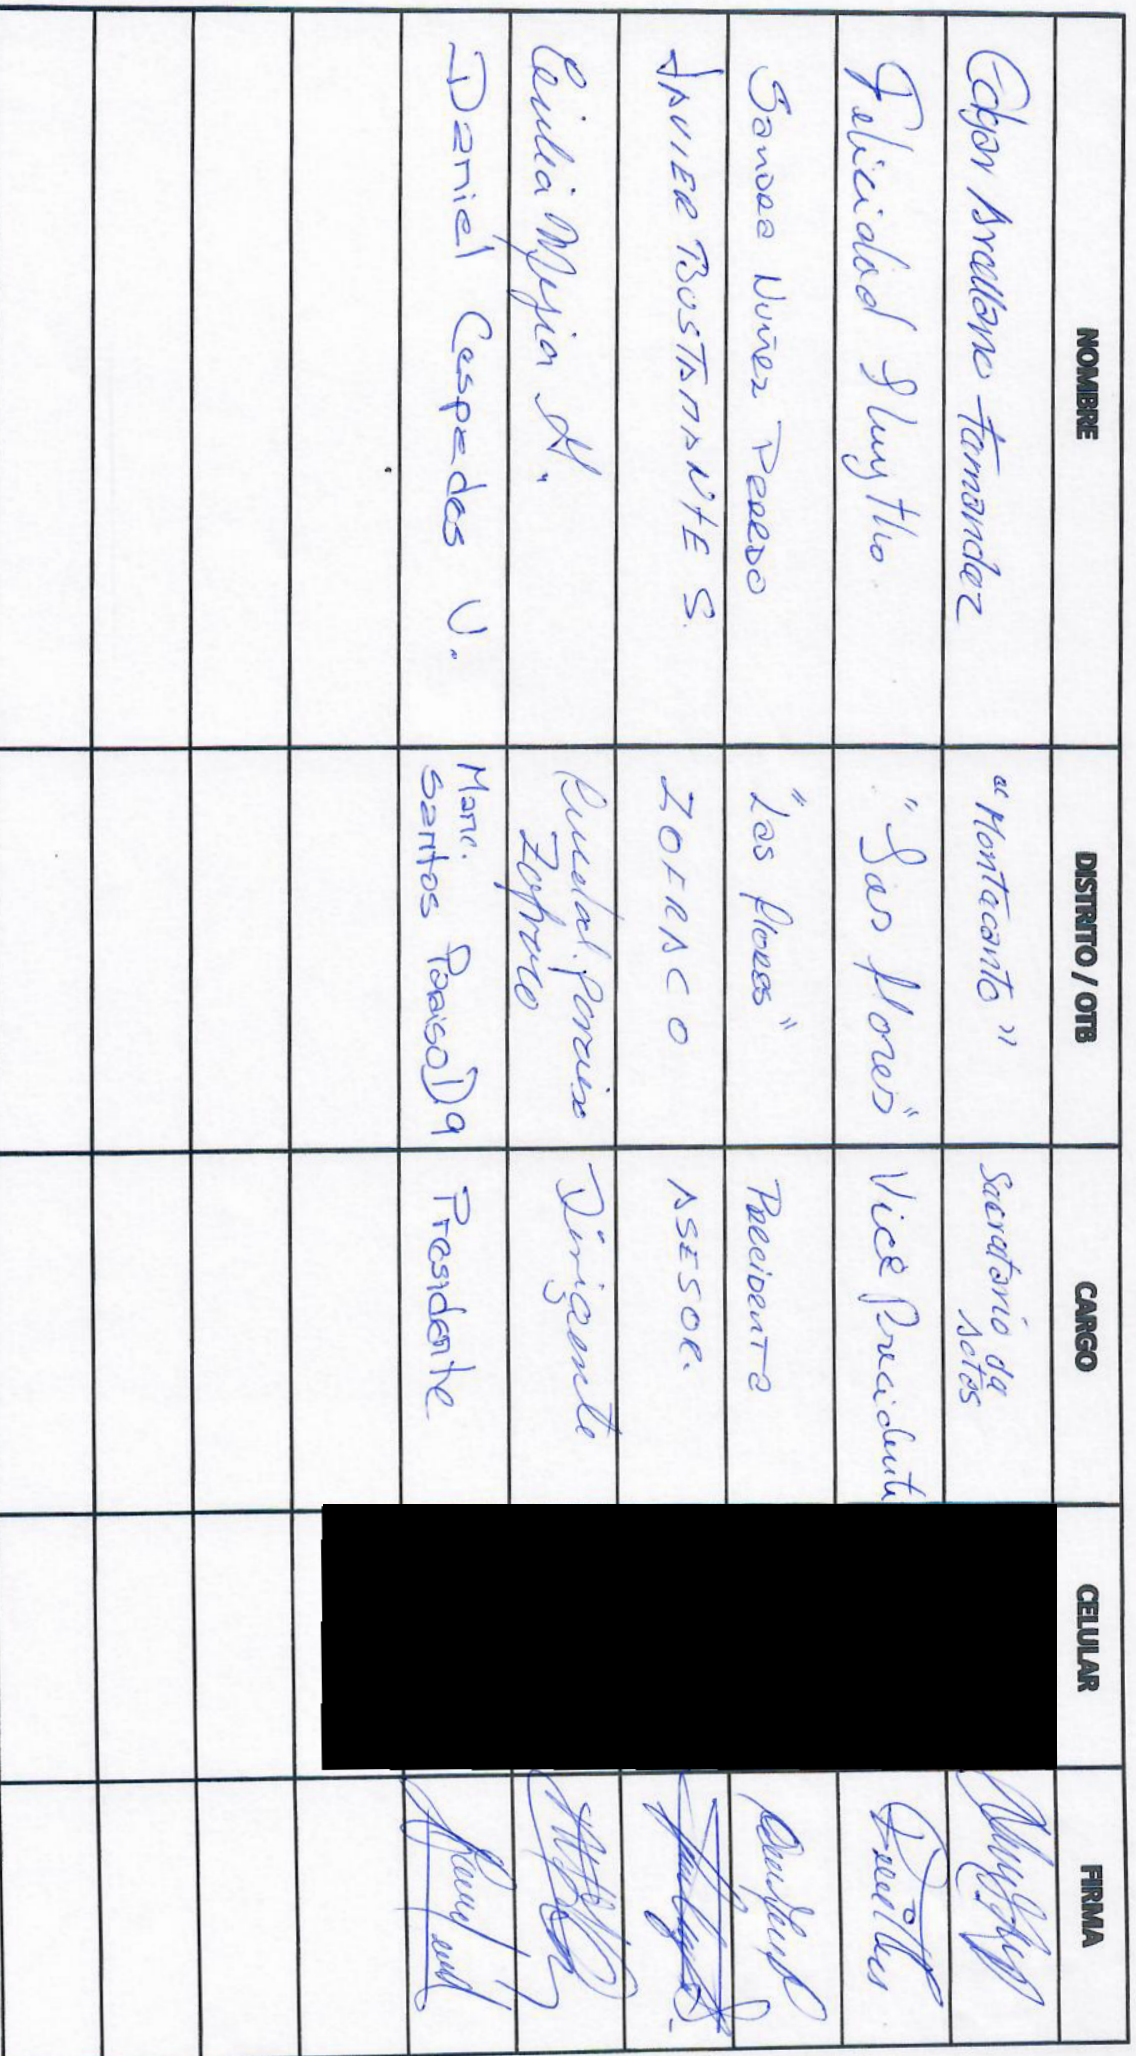 NOMBRE DISTRITO / OTB CARGO CELULAR FIRMA
Edgar Arcellano Fernandez "Montecanto" Secretario de
Actos
Felicidad "Las flores" Vice Precidente
Sandra Nuñez Peredo "Las flores" Precidente
JAVIER BUSTAMANTE S. ZOFRACO ASESOR.
Cecilia Mejia M. paraiso Dirigente
Zofraco
Daniel Cespedes V. Manc.
Santos Paraiso D9 Presidente